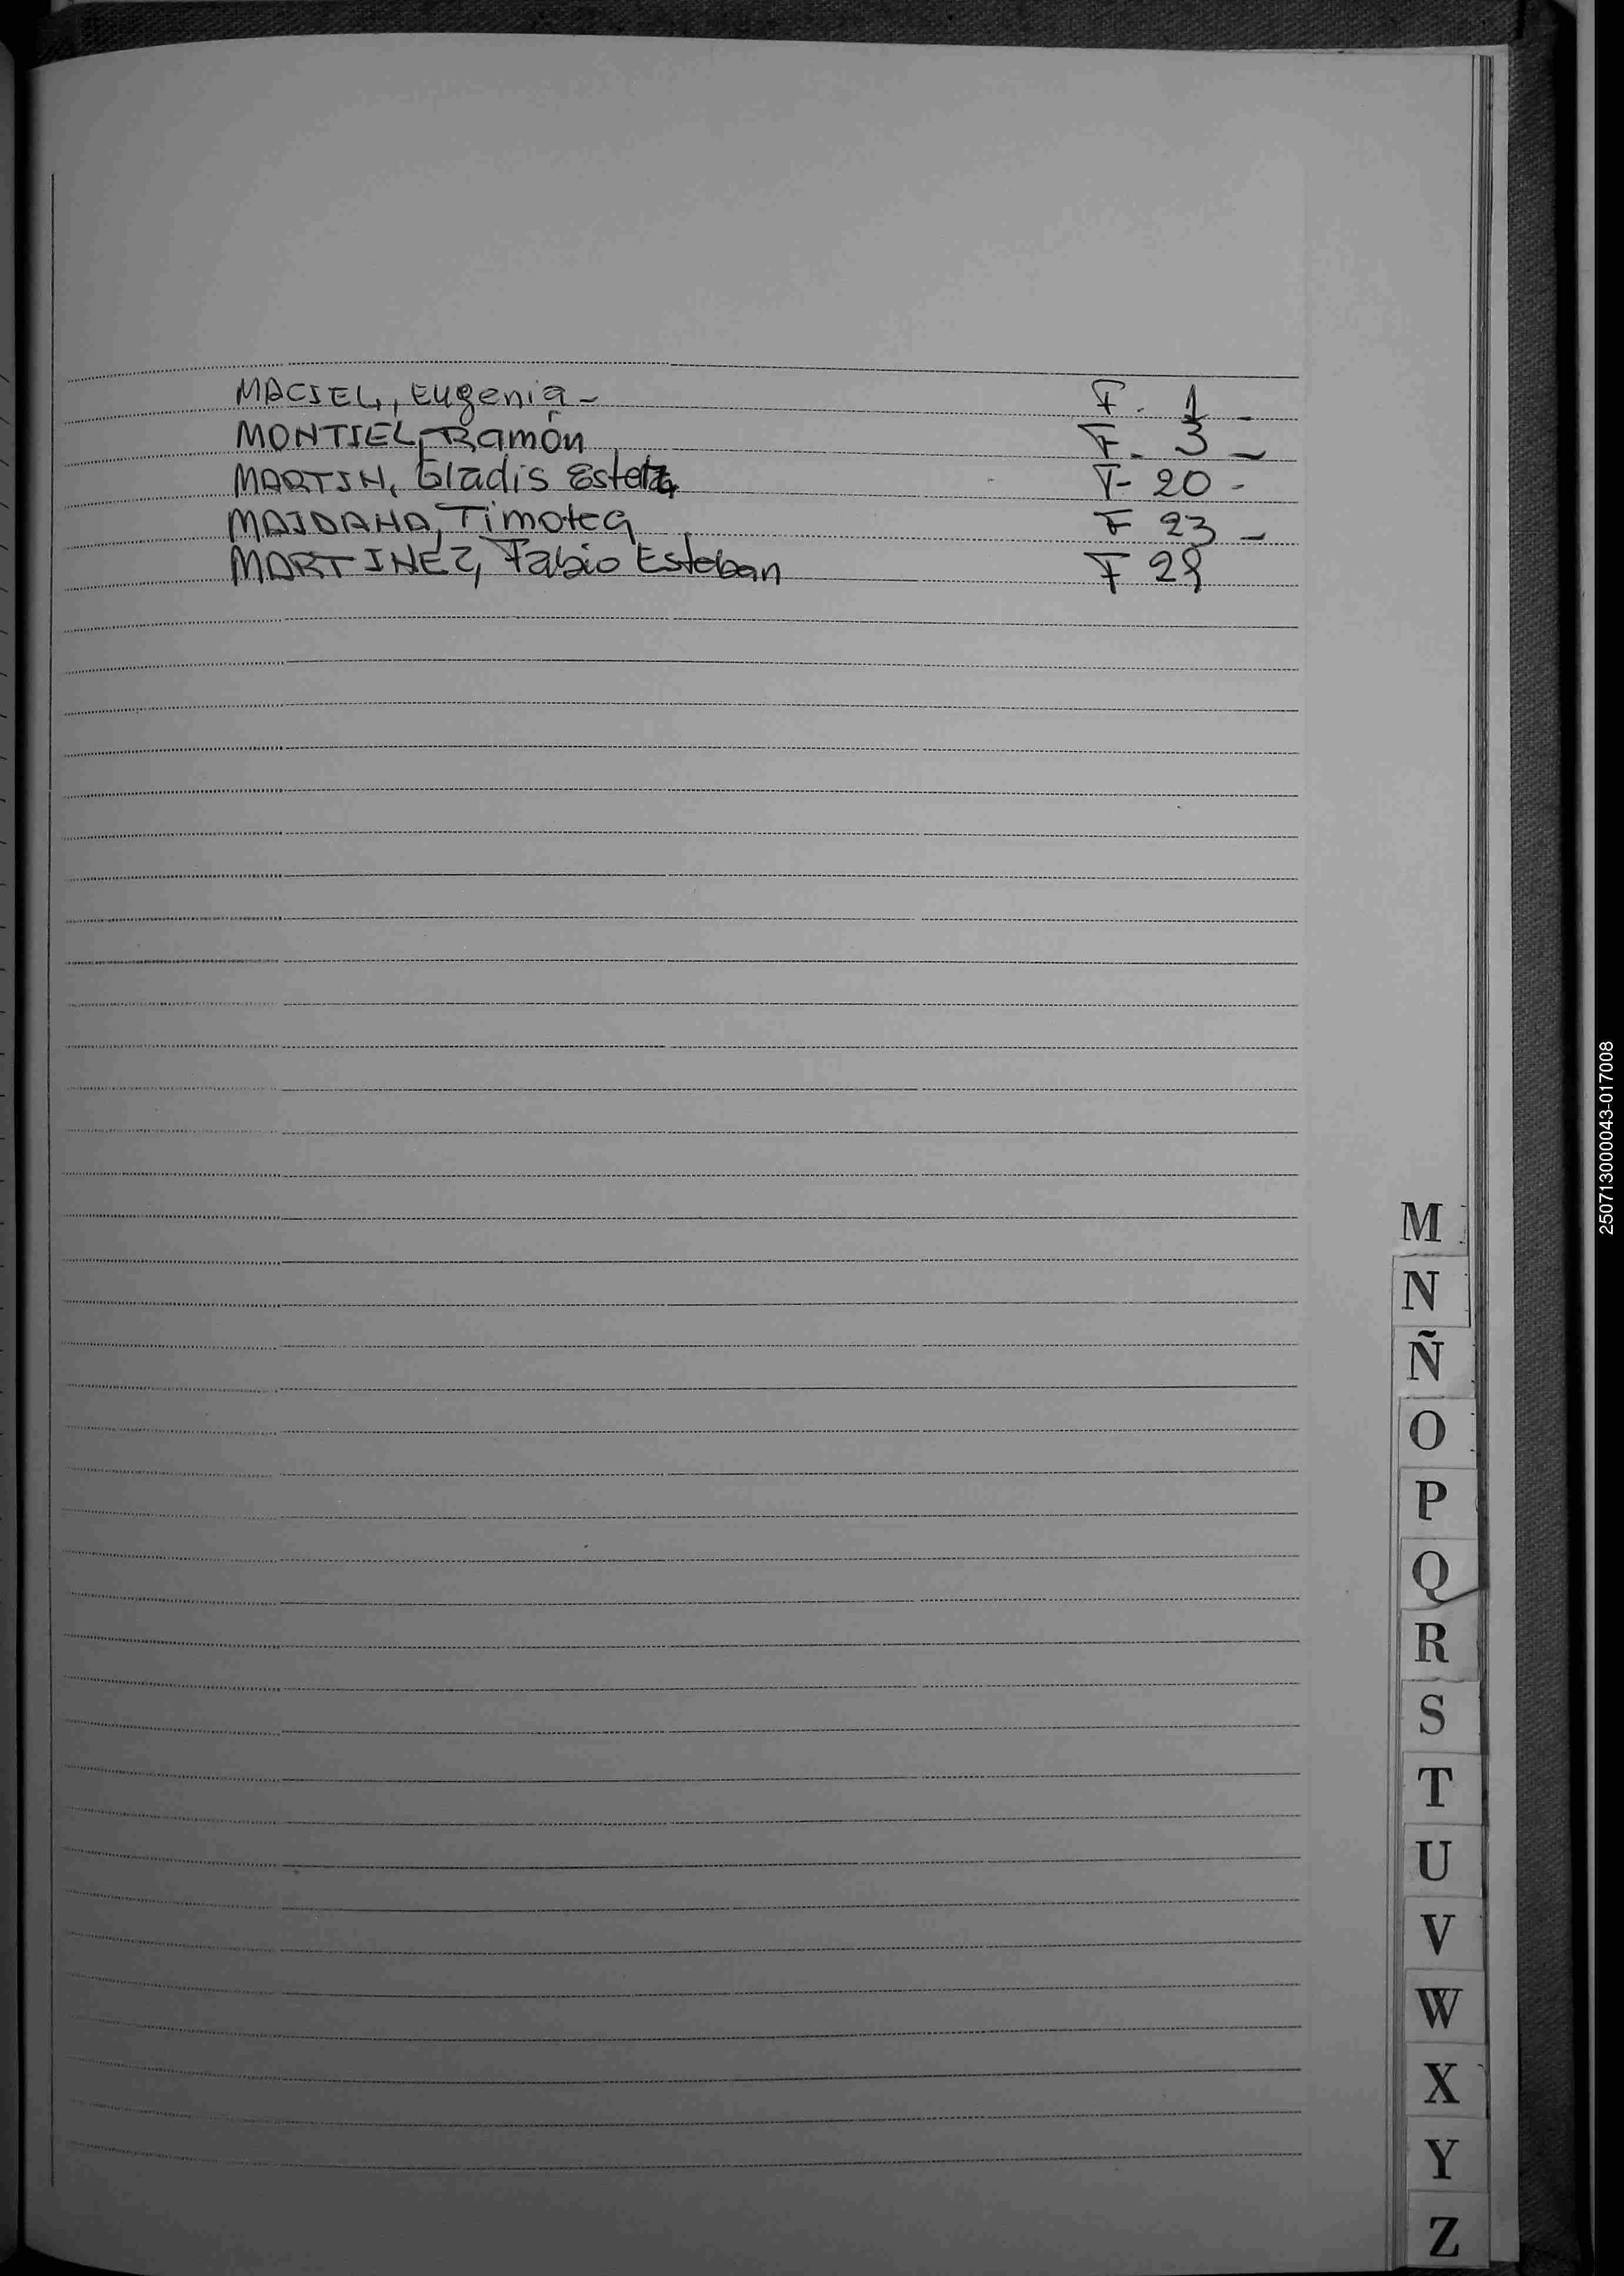 MACIEL, Eugenia - F. 1 -
MONTIEL, Ramón F. 3 -
MARTIN, Gladis Estela F- 20 -
MAIDANA, Timotea F 23 -
MARTINEZ, Fabio Esteban F 29
M
N
Ñ
O
P
Q
R
S
T
U
V
W
X
Y
Z
250713000043-017008